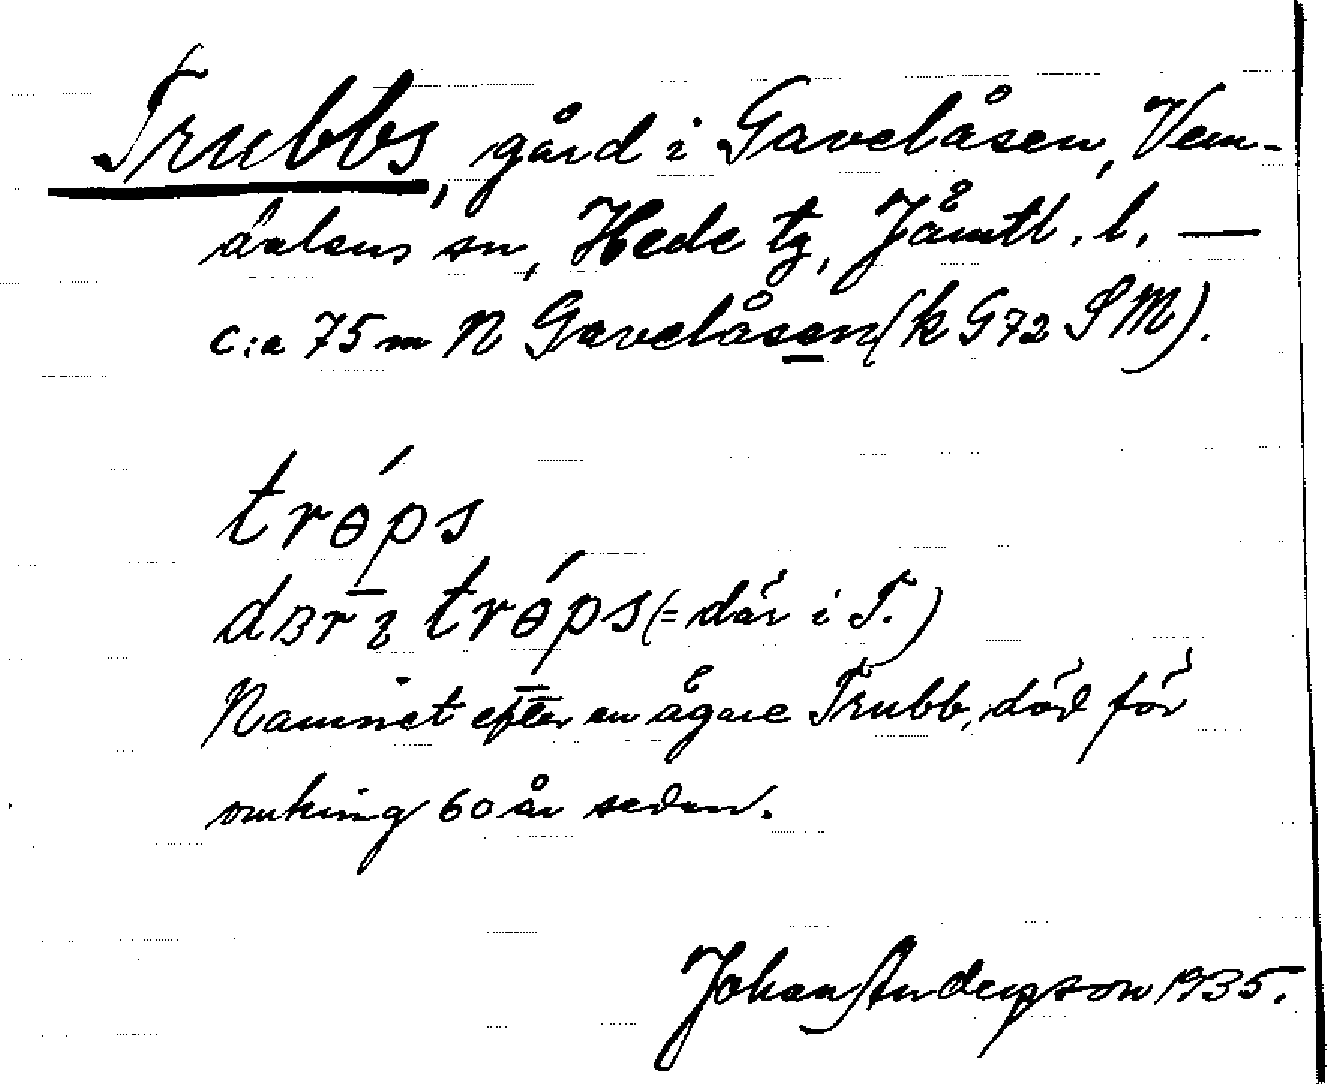 Trubbs, gård i Gavelåsen, Vem-
dalens sn, Hede tg, Jämtl. l. —
c:a 75 m N Gavelåsen (k G 72 S M).
trɵ́ps
dɜr ɪ trɵ́ps (= där i T.)
Namnet efter en ägare Trubb, död för
omkring 60 år sedan.
Johan Andersson 1935.